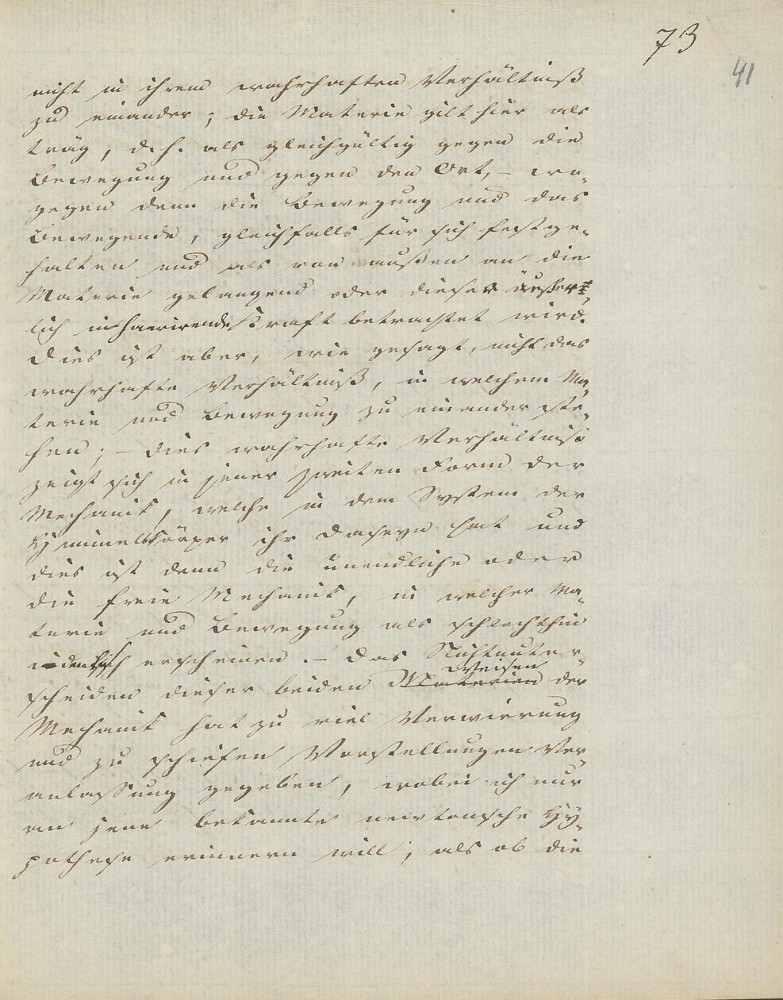 73
41
nicht in ihrem wahrhaften Verhältniß
zu einander; die Materie gilt hier als
träg, d. h. als gleichgültig gegen die
Bewegung und gegen den Ort, – wo-
gegen denn die Bewegung und das
Bewegende, gleichfalls für sich festge-
halten und als von außen an die
Materie gelangend oder dieser äußer-
lich inhaerirende Kraft betrachtet wird.
Dies ist aber, wie gesagt, nicht das
wahrhafte Verhältniß, in welchem Ma-
terie und Bewegung zu einander ste-
hen; – dies wahrhafte Verhältniß
zeigt sich in jener zweiten Form der
Mechanik, welche in dem System der
Himmelskörper ihr Daseyn hat und
dies ist denn die unendliche oder
die freie Mechanik, in welcher Ma-
terie und Bewegung als schlechthin
identisch erscheinen. – Das Nichtunter-
scheiden dieser beiden Materien Weisen der
Mechanik hat zu viel Verwirrung
und zu schiefen Vorstellungen Ver-
anlassung gegeben, wobei ich nur
an jene bekannte newtonsche Hy-
pothese erinnern will, als ob die